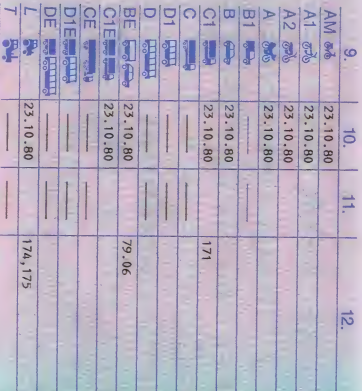 9. 10. 11. 12.
AM 23.10.80
A1 23.10.80
A2 23.10.80
A 23.10.80
B1 — —
B 23.10.80
C1 23.10.80 171
C — —
D1 — —
D — —
BE 23.10.80 79.06
C1E 23.10.80
CE — —
D1E — —
DE — —
L 23.10.80 174,175
T — —